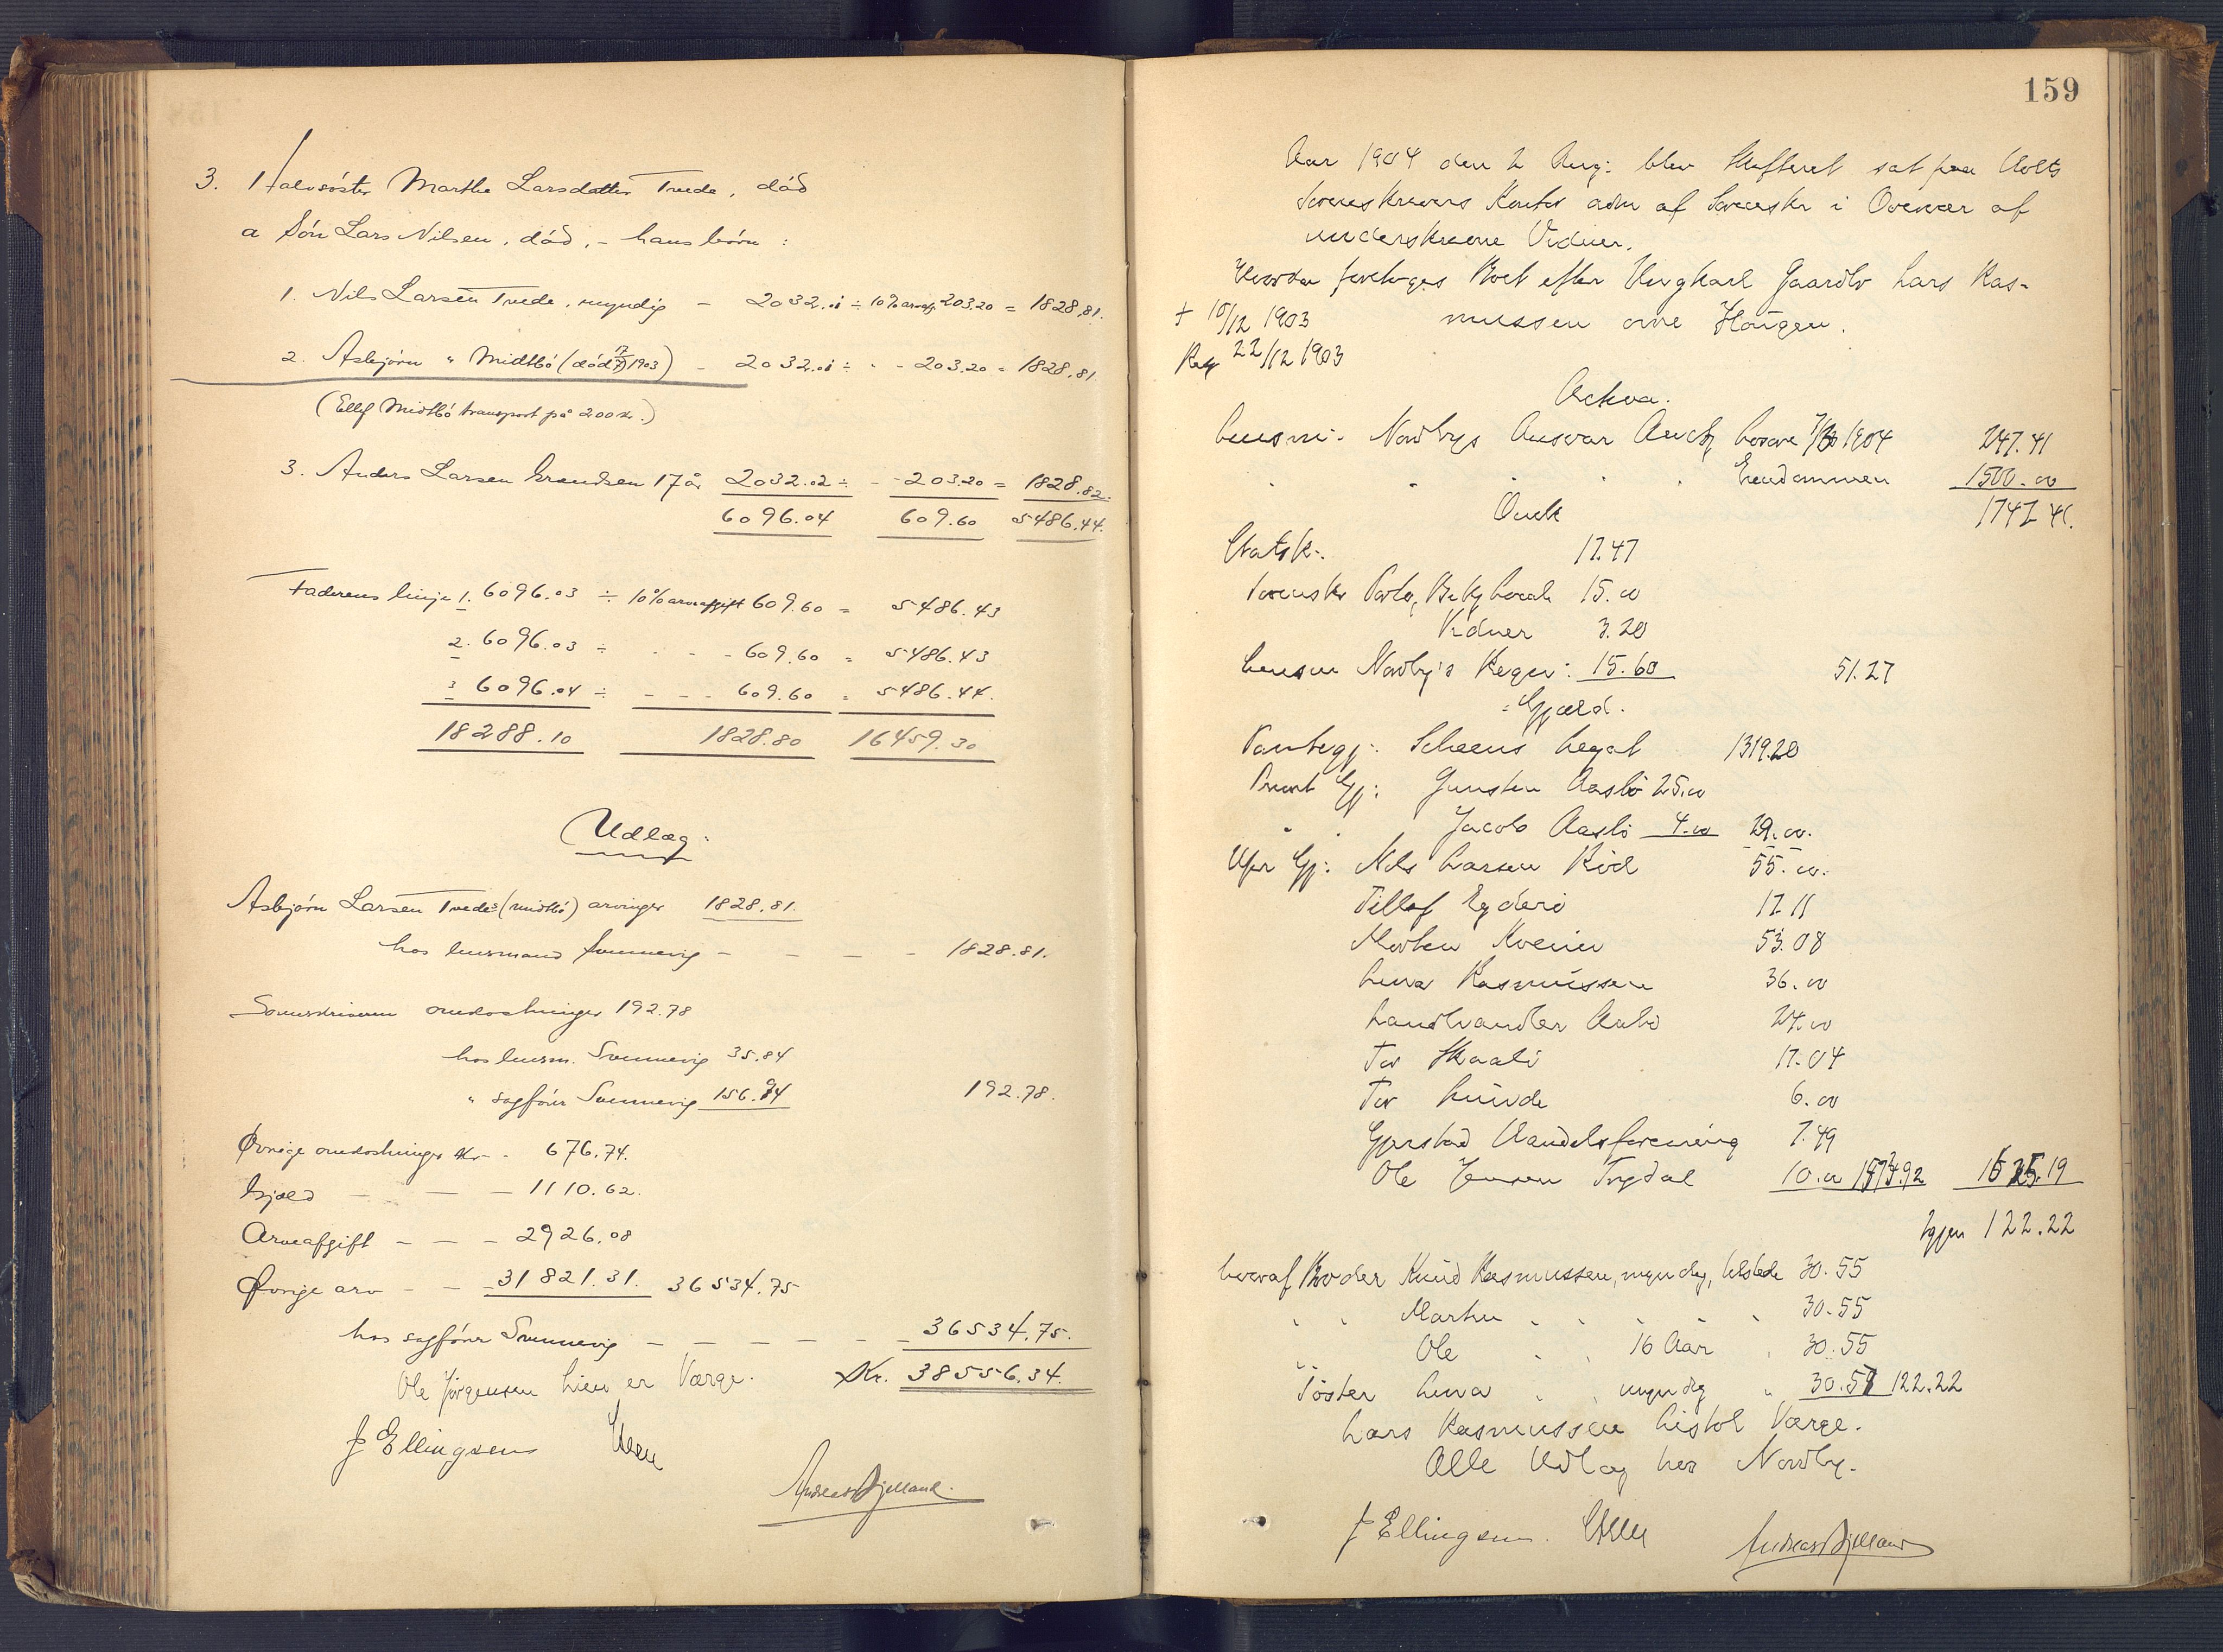 3. Halvsøster Marthe Larsdatter Tvede, død
a Søn Lars Nilsen, død, - hans børn :
1. Nils Larsen Tvede, myndig - 2032.01 ÷ 10% arveafg. 203.20 = 1828.81.
2. Asbjørn " Midtbø (død 17/7 1903) - 2032.01 ÷ - - 203.20 = 1828.81
(Ellef Midtbø transport på 200 kr.)
3. Anders Larsen 17 år 2032.02 ÷ - - 203.20 = 1828.82.
6096.04 609.60 5486.44.
Faderens linje 1. 6096.03 ÷ 10% arveafgift 609.60 = 5486.43
2. 6096.03 ÷ - - - 609.60 = 5486.43
3 6096.04 ÷ - - - 609.60 = 5486.44.
18288.10 1828.80 16459.30
Udlæg:
Asbjørn Larsen Tvedes (midtbø) arvinger 1828.81.
hos lensmand Sunnevig - - - - 1828.81.
omkostninger 192.78
hos lensm. Sunnevig 35.84
" sagfører Sunnevig 156.94 192.78.
Øvrige omkostninger Kr - - 676.74.
Gjæld - - - 1110.62.
Arveafgift - - - 2926.08
Øvrige arv - - 31821.31. 36534.75
hos sagfører Sunnevig - - - - - - 36534.75.
Ole Jørgensen Lien er Værge. Kr. 38556.34.
J Ellingsen
Andreas Bjelland.
159
Aar 1904 den 2 Aug: blev Skifteret sat paa Holts
Sorenskrivers Kontor adm af Sorenskr i Overvær af
underskrevne Vidner.
Hvorda foretoges Boet efter Ungkarl Gaardbr Lars Ras-
† 10/12 1903 mussen Haugen.
Reg 22/12 1903
Activa.
Lensm: Nordbys Ansvar Auctg Losøre 1904 247.41
" " " " Eiendommen 1500.00
1747.41.
Statsk:. 17.47
Sorenskr Porto, Bekg 15.00
Vidner 3.20
Lensm Nordby's Regn: 15.60 51.27
Gjæld.
Pantegj: Scheens Legat 1319.20
Privat Gj: Gunsten Aasbø 25.00
" " Jacob Aasbø 4.00 29.00.
Upr Gj: Nils Larsen Kvil 55.00.
Tellef Egderø 17.11
Morten Kveim 53.08
Lena Rasmussen 36.00
Landhandler Aabø 24.00
Tor Skaali 17.04
Tor Lunde 6.00
Gjerstad Handelsforening 7.49
Ole Jensen Trydal 10.00 1573.92 1625.19
Igjen 122.22
heraf Broder Knud Rasmussen, myndig, tilstede 30.55
" " Marken " " " " 30.55
" Ole " " 16 Aar " 30.55
Søster Lena " " myndig " 30.57 122.22
Lars Rasmussen Værge.
Alle Udlæg hos Nordby.
J Ellingsen.
Andreas Bjelland